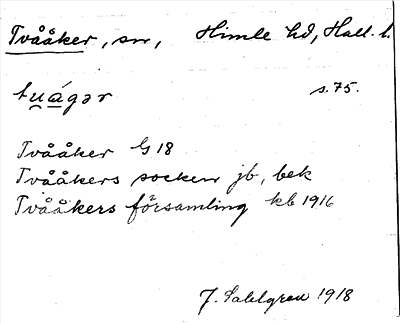 Tvååker, sn, Himle hd, Hall. l.
tuágər s. 75.
Tvååker G 18
Tvååkers socken jb, bek
Tvååkers församling kb 1916
J. Sahlgren 1918